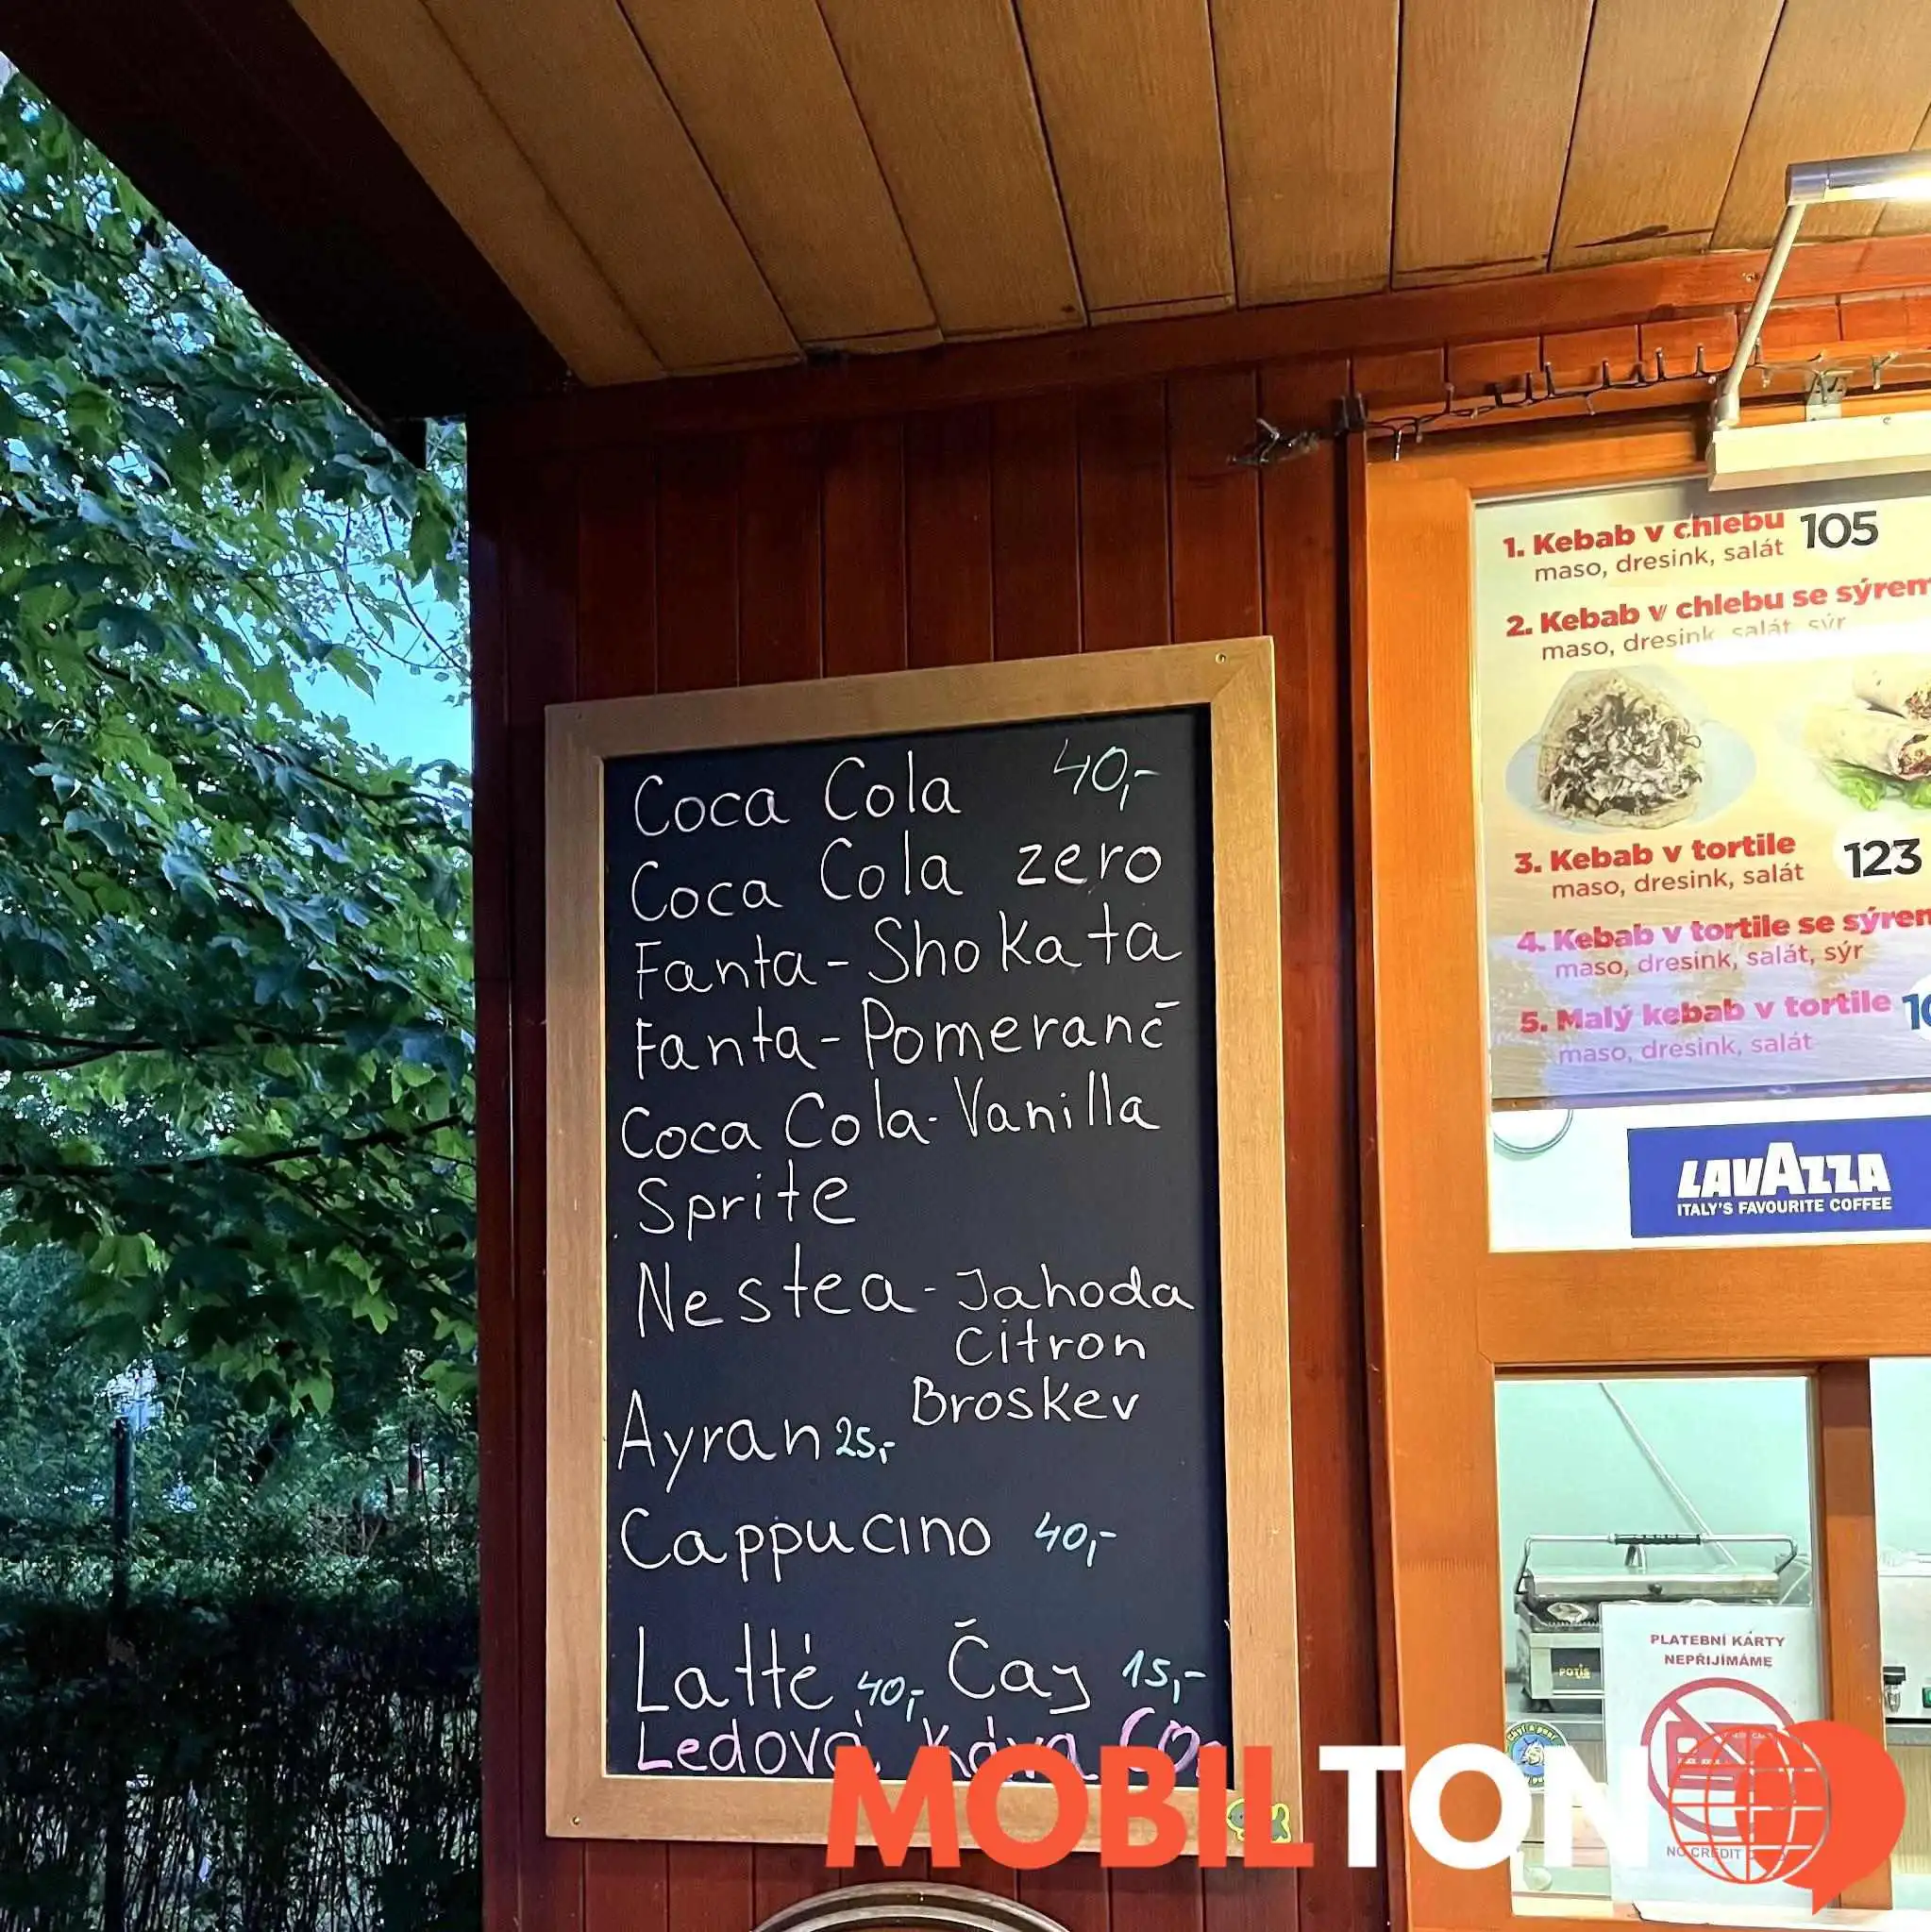 Coca Cola 40,-
Coca Cola zero
Fanta - Shokata
Fanta - Pomeranč
Coca Cola - Vanilla
Sprite
Nestea - Jahoda
Citron
Broskev
Ayran 25,-
Cappucino 40,-
Latté 40,- Čaj 15,-
Ledová Káva
1. Kebab v chlebu 105
maso, dresink, salát
2. Kebab v chlebu se sýrem
maso, dresink, salát, sýr
3. Kebab v tortile 123
maso, dresink, salát
4. Kebab v tortile se sýrem
maso, dresink, salát, sýr
5. Malý kebab v tortile
maso, dresink, salát
LAVAZZA
ITALY'S FAVOURITE COFFEE
POTIS
PLATEBNÍ KARTY
NEPŘIJÍMÁME
NO CREDIT
MOBILTON